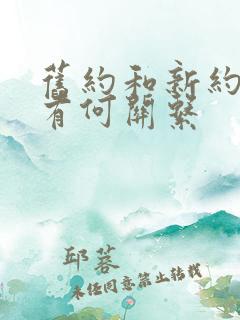 舊約和新約
有何關繫
邱蓉
未經同意禁止轉載